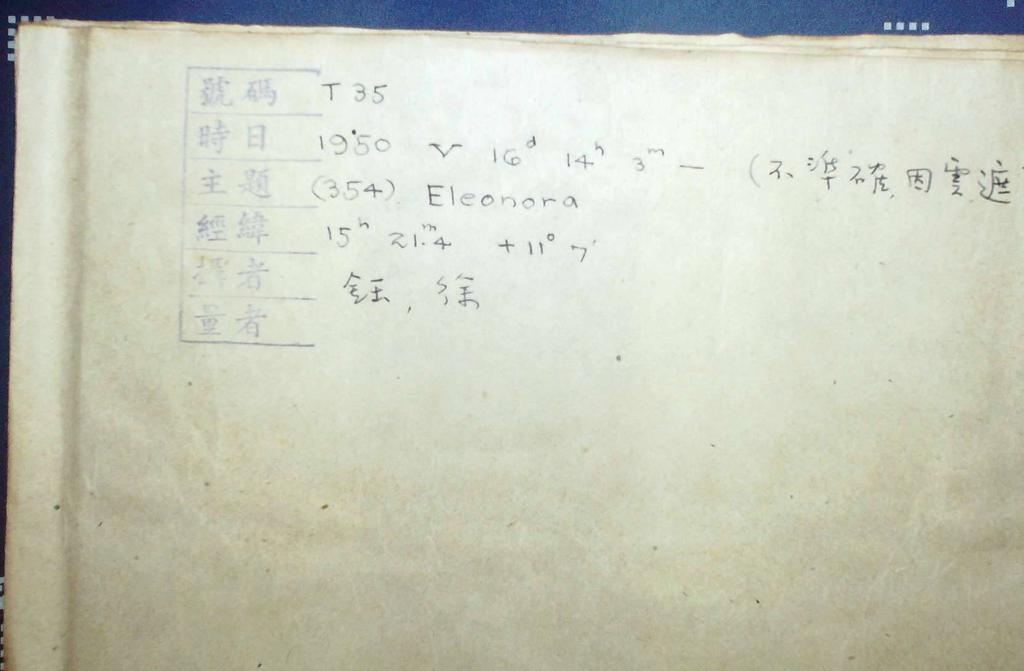 號碼 T 35
時日 1950 V 16ᵈ 14ʰ 3ᵐ — (不準確,因雲遮
主題 (354) Eleonora
經緯 15ʰ 21ᵐ.4 +11° 7'
者 鈺, 徐
量者